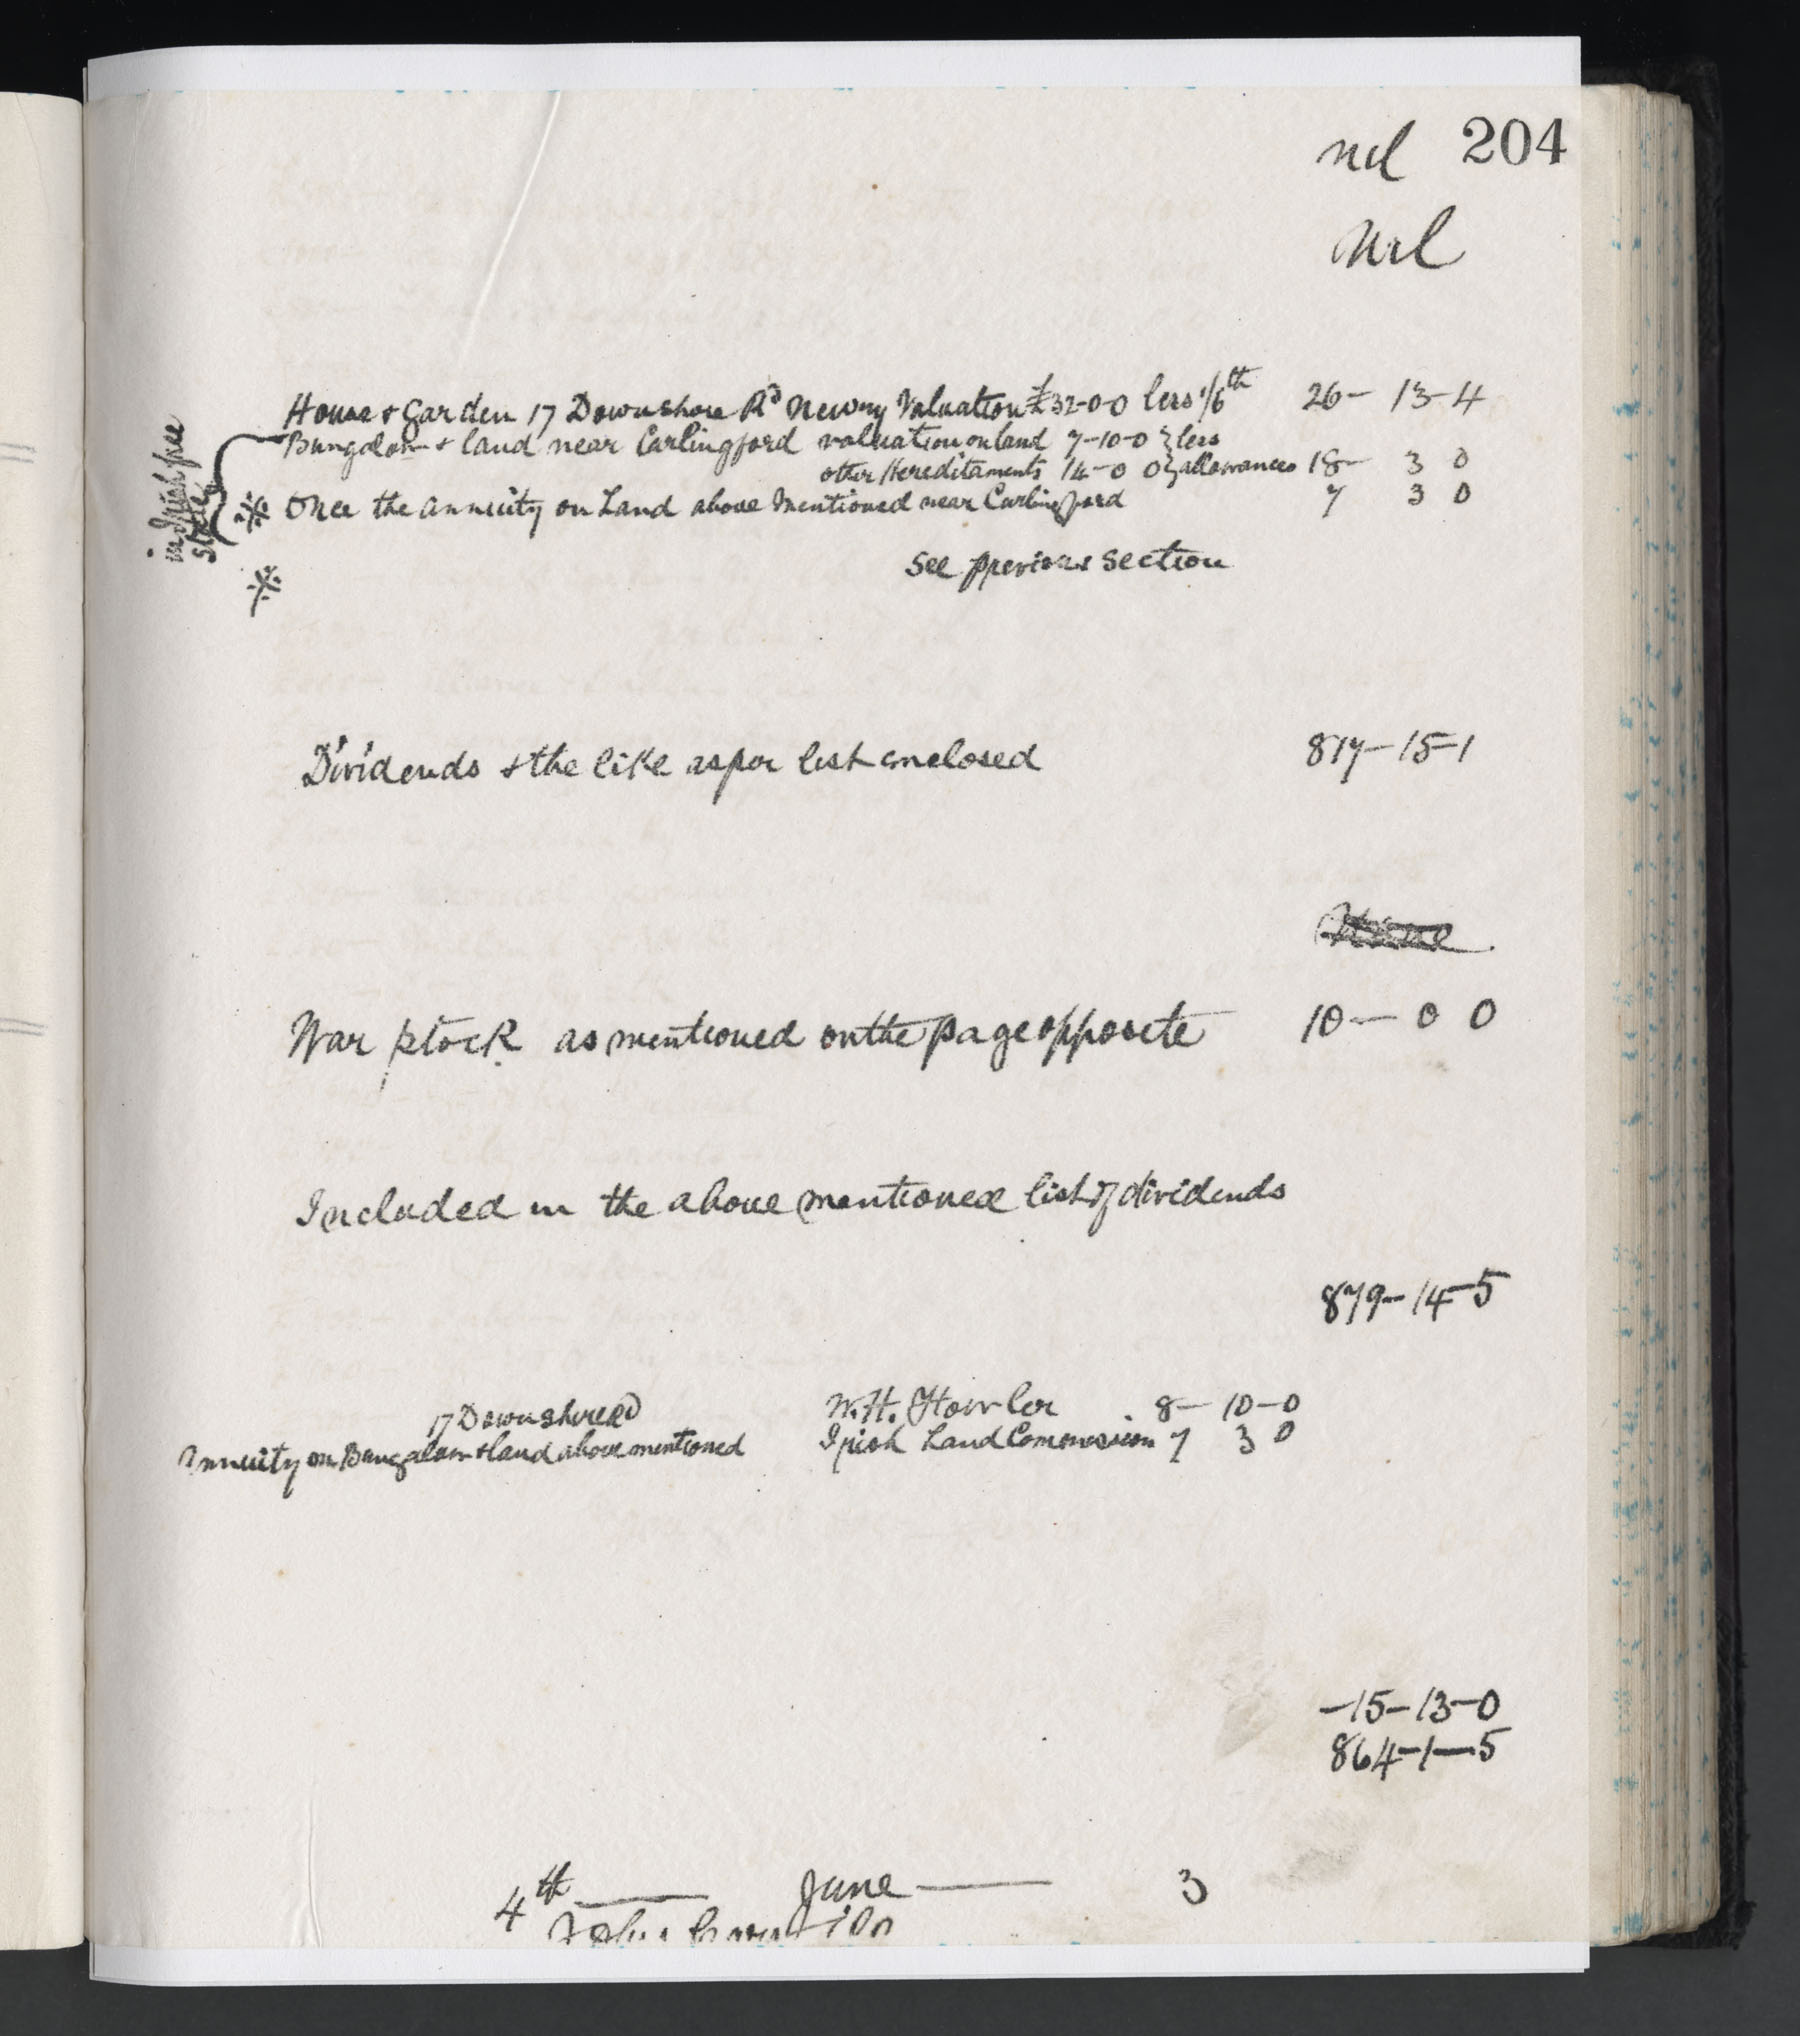 nil 204
nil
House & Garden 17 Downshire Rd Newry Valuation £32-0-0 less 1/6th 26-13-4
Bungalow & land near Carlingford valuation on land 7-10-0 } less
other Hereditaments 14-0 0 } allowances 18- 3 0
in Irish free
state
※ Once the annuity on Land above mentioned near Carlingford 7 3 0
see previous section
※
Dividends & the like as per list enclosed 817-15-1
War stock as mentioned on the page opposite 10-0 0
Included in the above mentioned list of dividends
879-14-5
17 Downshire Rd W.H. Fowler 8-10-0
Annuity on Bungalow & land above mentioned Irish Land Commission 7 3 0
-15-13-0
864-1-5
4th June 3